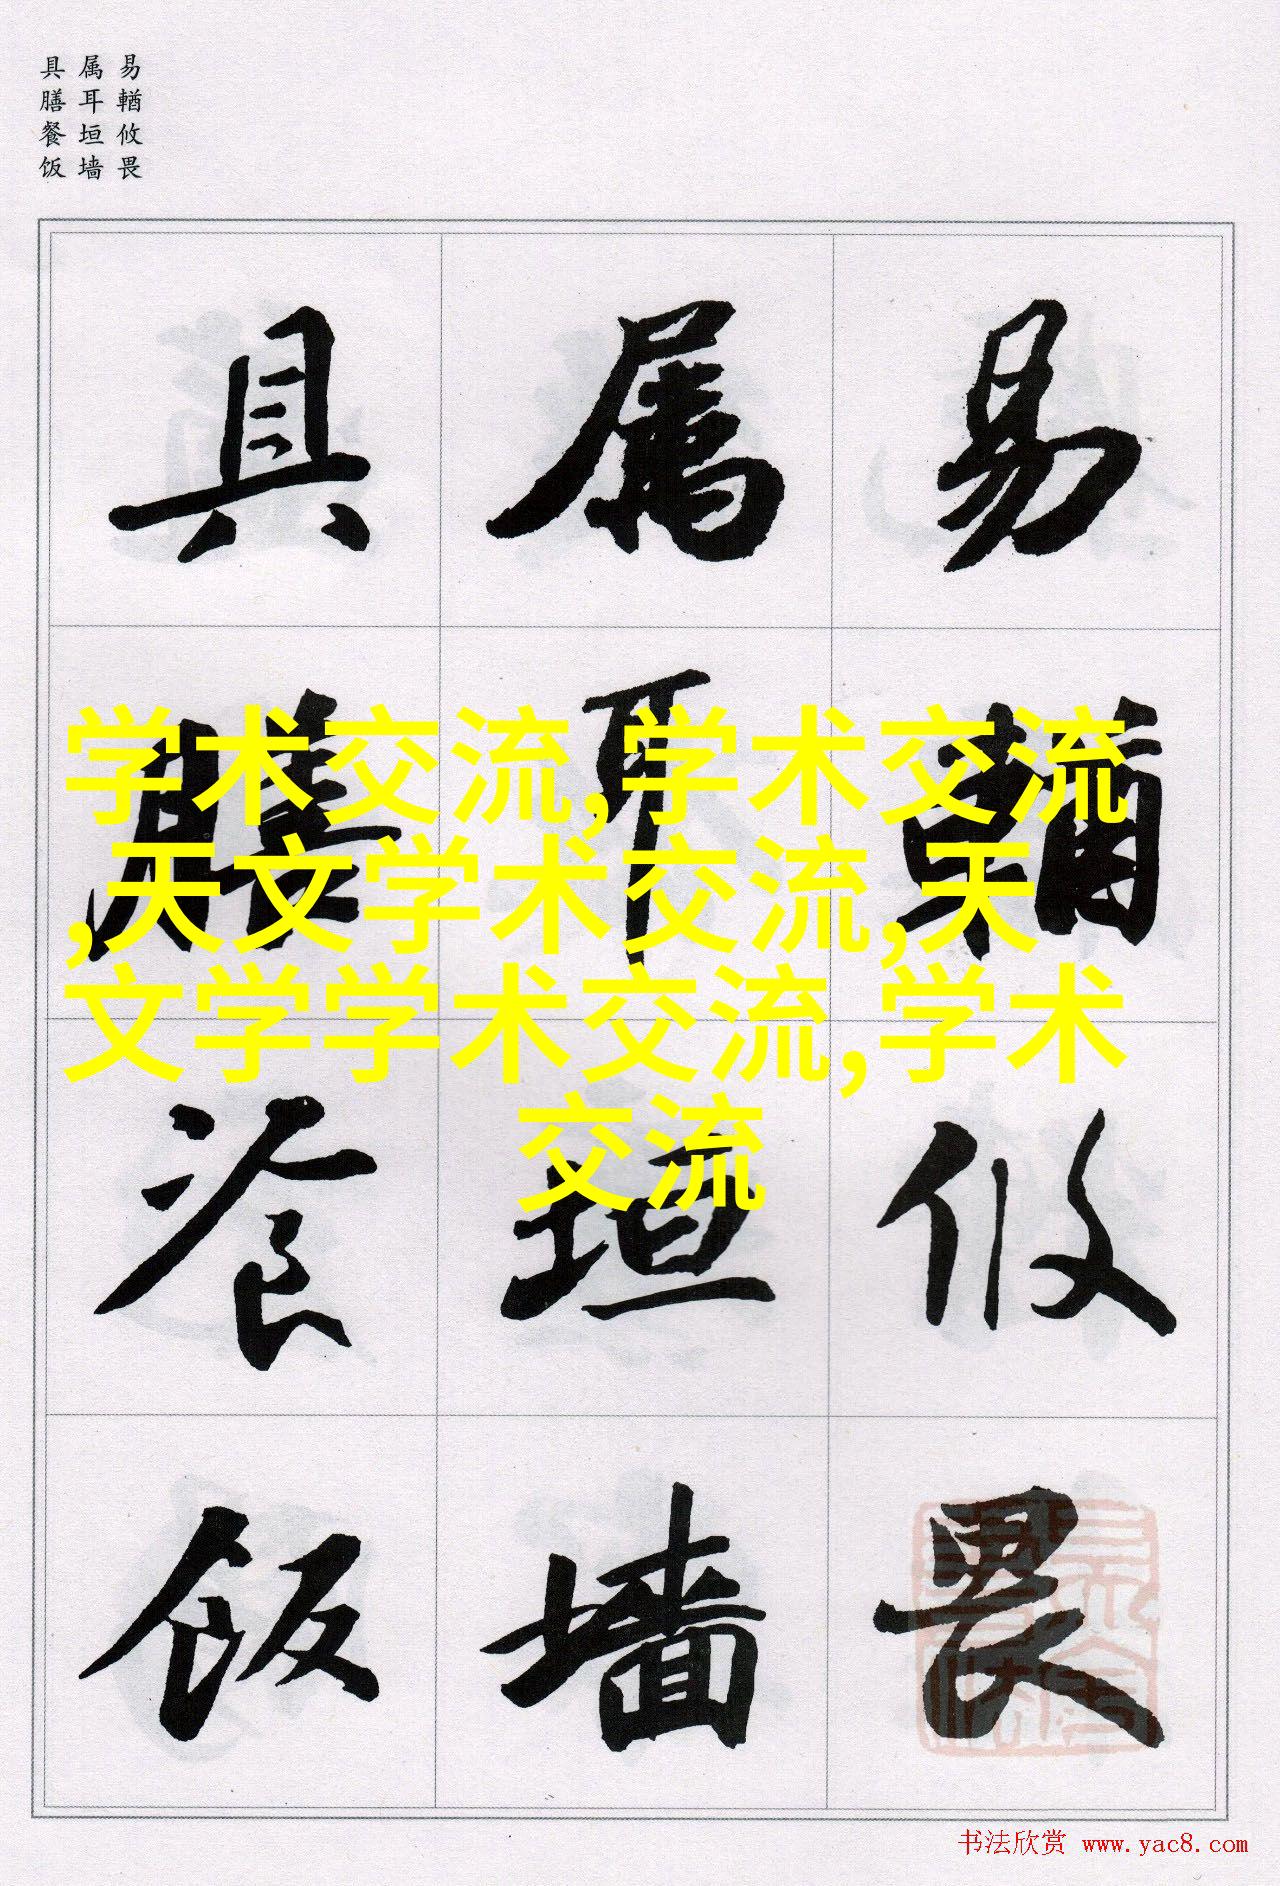 易輶攸畏
属耳垣墙
具膳餐饭
易輶攸畏
属耳垣墙
具膳飡飯
学术交流,学术交流
,天文学术交流,天
文学学术交流,学术
交流
书法欣赏 www.yac8.com